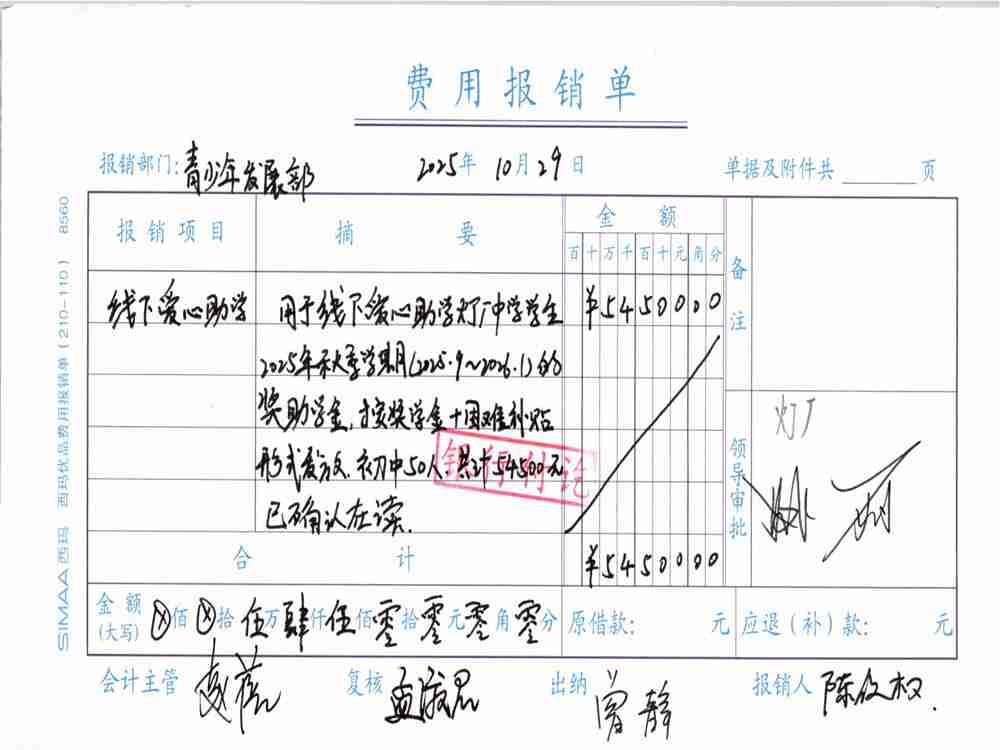 费用报销单
报销部门:青少年发展部 2025年 10月29日 单据及附件共 页
报销项目 摘要 金额 备注
百十万千百十元角分
线下爱心助学 用于线下爱心助学灯厂中学学生 ¥5450000
2025年秋季学期(2025.9~2026.1)的
奖助学金,按奖学金+困难补贴
形式发放.初中50人.共计54500元
已确认在读.
银行付讫
领导审批
灯厂
合计 ¥5450000
金额(大写) ⊗佰⊗拾伍万肆仟伍佰零拾零元零角零分 原借款: 元 应退(补)款: 元
会计主管 复核 出纳 曾静 报销人 陈俊权.
SIMAA西玛 西玛优品费用报销单(210-110) 8560